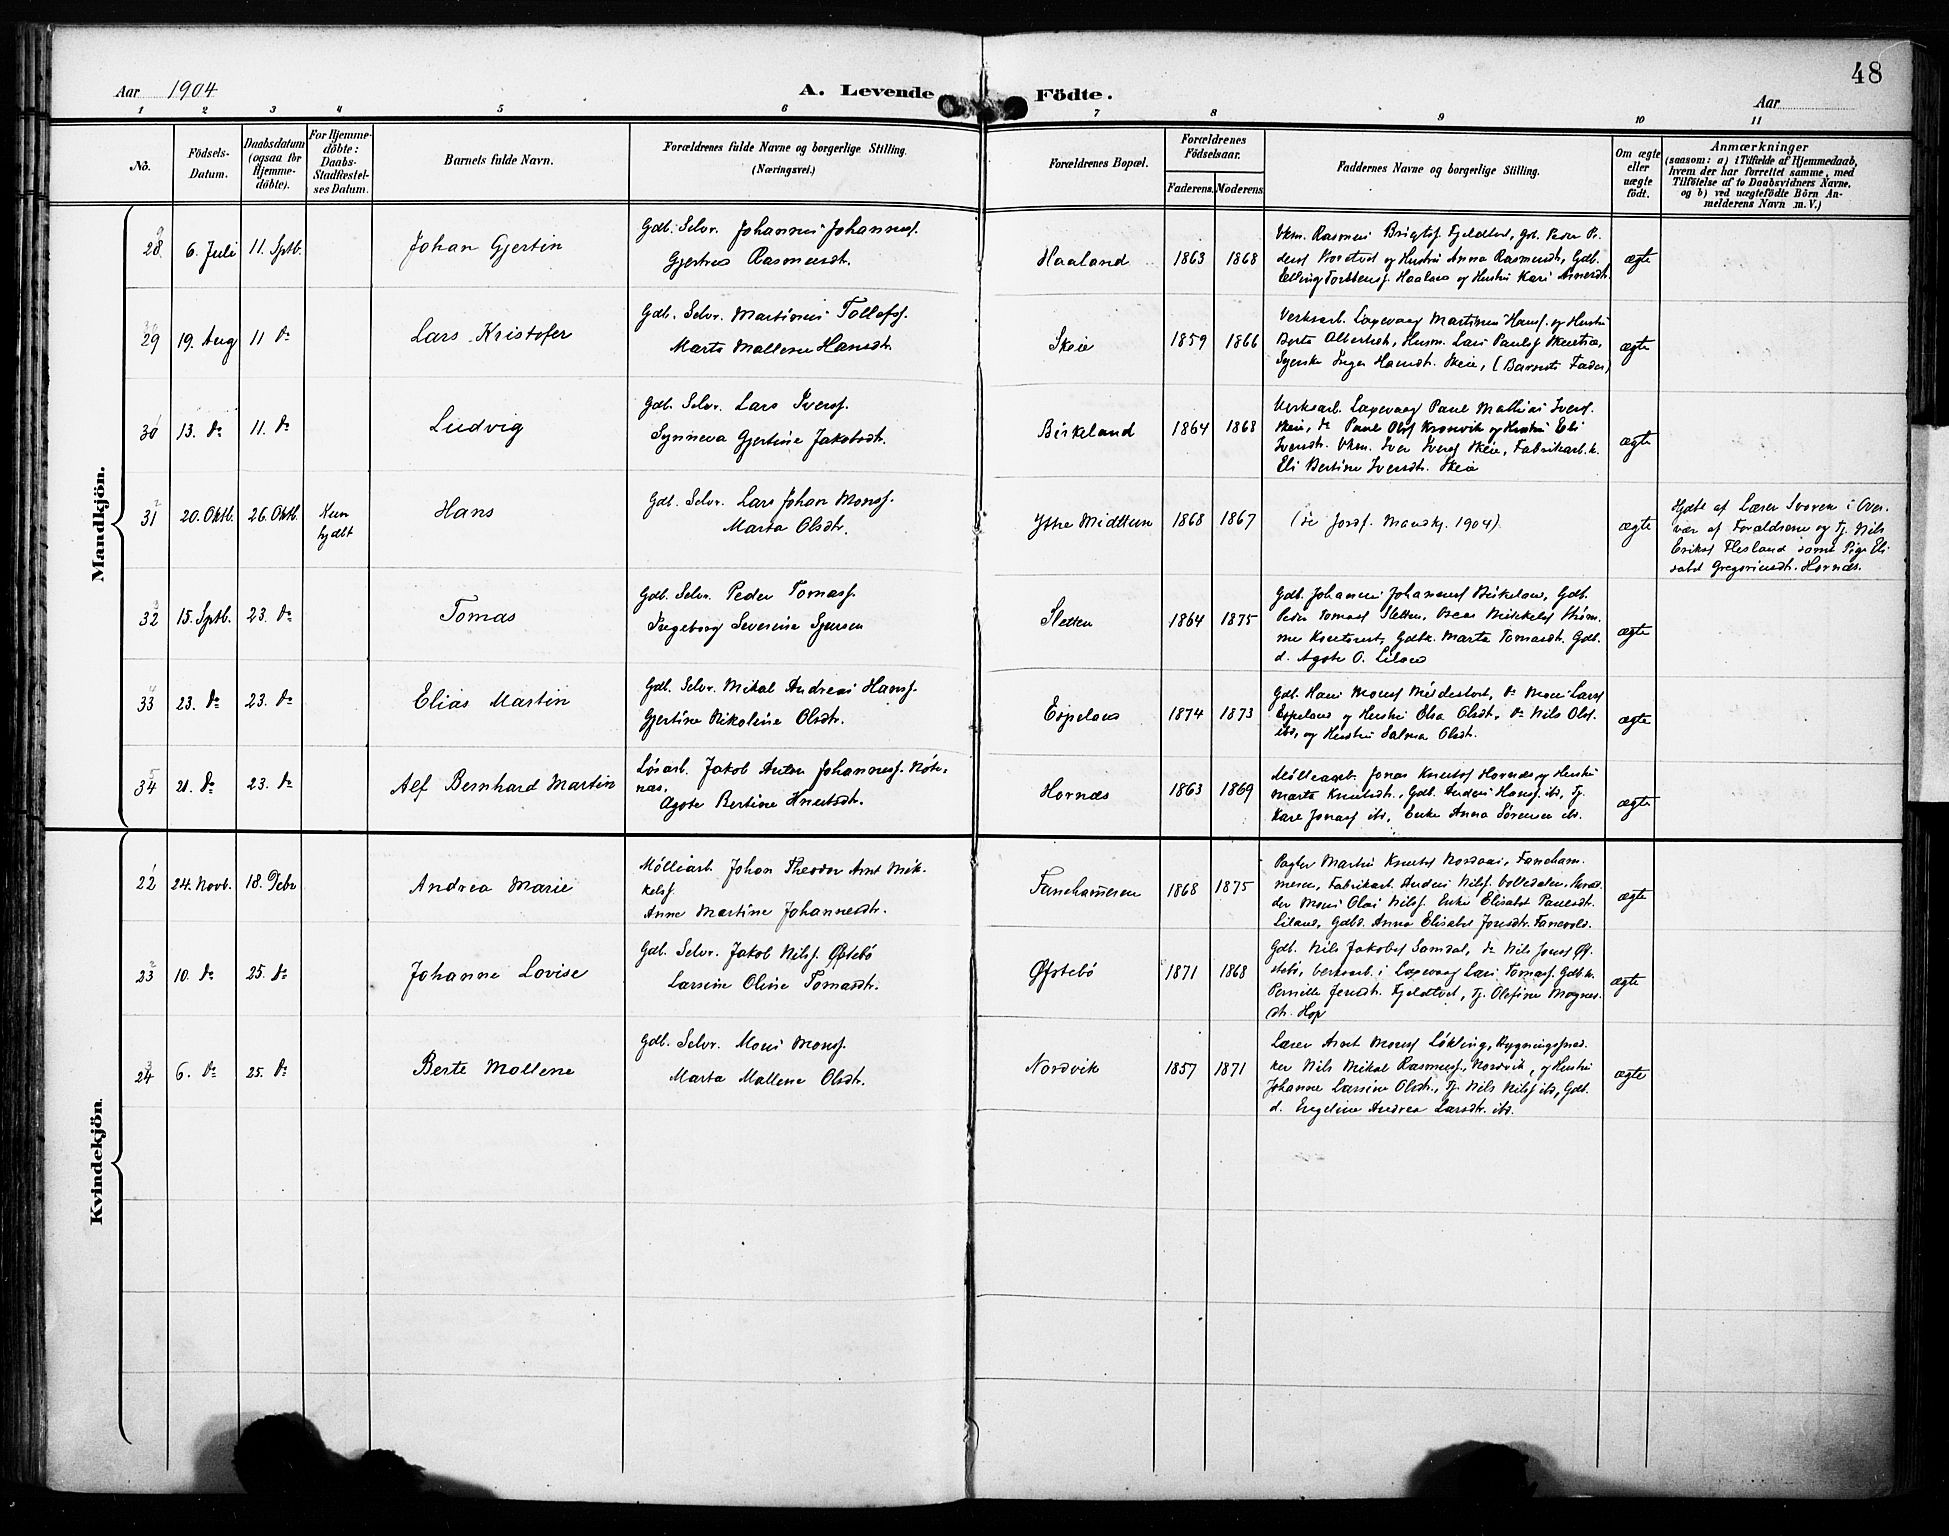 Aar 1904
A. Levende Födte.
48
Aar
1 2 3 4 5 6 7 8 9 10 11
No.
Födsels-Datum.
Daabsdatum (ogsaa for Hjemme-döbte).
For Hjemme-döbte: Daabs-Stadfæstel-ses Datum.
Barnets fulde Navn.
Forældrenes fulde Navne og borgerlige Stilling.
(Næringsvei.)
Forældrenes Bopæl.
Forældrenes Födselsaar.
Faderens. Moderens
Faddernes Navne og borgerlige Stilling.
Om ægte eller uægte födt.
Anmærkninger
(saasom: a) i Tilfælde af Hjemmedaab,
hvem der har forrettet samme, med
Tilföielse af to Daabsvidners Navne,
og b) ved uægtefödte Börn An-
melderens Navn m. V.)
Mandkjön.
28 6 Juli 11. Sptb. Johan Gjertin
Gdb. Selv. Johannes Johannesf.
Gjertrud Rasmusdt.
Haaland 1863 1868
Vkm. Rasmus Brigtsf. Fjeldtvet, Gdb. Peder Pe-
dersf og Hustru Anna Rasmusdt, Gdb.
Elling Torbbensf. Haaland og Hustru Kari
ægte
29 19. Aug 11 do Lars Kristofer
Gdb. Selv. Martinus Tollefsf.
Marta Mallene Hansdt.
Skeie 1859 1866
Verksarb. Laxevaag Martinus Hansf. og Hustru
Berta Olbertsdt, Husm. Lars Paulsf
Inger Hansdt. Skeie, (Barnets Fader)
ægte
30 13. do 11. do Ludvig
Gdb. Selv. Lars Iversf.
Synneva Gjertine Jakobsdt.
Birkeland 1864 1868
Verksarb. Laxevaag Paul Mathias Iversf.
Skeie, do Paul Olsf Kronvik og Hustru Eli
Iversdt. Vkm. Iver Iversf Skeie, Fabrikarb. k.
Eli Bertine Iversdt. Skeie
ægte
31 20. Oktb. 26. Oktb. Kun hjdbt Hans
Gdb. Selv. Lars Johan Monsf.
Marta Olsdtr.
Ytre Midttun 1868 1867
(se Jordf. Mandkj. 1904).
ægte
Hjdbt af Lærer Svoren i Over-
vær af Forældrene og Tj. Nils
Eriksf Flesland samt Pige Eli
sabet Gregoriusdt. Hornæs.
32 15. Sptb. 23. do Tomas
Gdb. Selv. Peder Tomasf.
Ingeborg Severine Sjursen
Sletten 1864 1875
Gdb. Johannes Johannesf Birkeland, Gdb.
Peder Tomasf Sletten,
Gdbk. Marta Tomasdt. Gdb.
d. Agate O. Liland
ægte
33 23. do 23. do Elias Martin
Gdb. Selv. Mikal Andreas Hansf.
Gjertine Nikoline Olsdt.
Espeland 1874 1873
Gdb. Hans Monsf Mildestvet, do Mons Larsf
Espeland og Hustru Elsa Olsdt, do Nils Olsf.
ibd, og Hustru Salma Olsdt.
ægte
34 21. do 23. do Alf Bernhard Martin
Løsarb. Jakob Anton Johannesf. Nøte-
næs,
Agote Bertine Knutsdt.
Hornæs 1863 1869
Møllearb. Jonas Knutsf Hornæs og Hustru
Marta Knutsdt., Gdb. Anders Hansf. ibd, Tj.
Kare Jonasf ibd, Enke Anna Sørensen ibd.
ægte
Kvindekjön.
22 24. Novb. 18. Debr Andrea Marie
Møllearb. Johan Theodor Arnt Mik-
kelsf.
Anne Martine Johannesdt.
Fanehammeren 1868 1875
Martin Knutsf Nordaas, Faneham-
meren, Fabrikarb. Anders Nilsf.
Mons Olai Nilsf. Enke Elisabet Paulsdt
Liland, Gdbd. Anna Elisabet Jonsdt. Fanevold.
ægte
23 10. do 25. do Johanne Lovise
Gdb. Selv. Jakob Nilsf. Øfstebø
Larsine Oline Tomasdt.
Øfstebø 1871 1868
Gdb. Nils Jakobsf Samdal, do Nils Jonsf Øf-
stebø, Verksarb. i Laxevaag Lars Tomasf. Gdb. k.
Pernille Jensdt. Fjeldtvet, Tj. Olefine Magnes-
dt. Hop
ægte
24 6. do 25. do Berte Mallene
Gdb. Selv. Mons Monsf.
Marta Mallene Olsdt.
Nordvik 1857 1871
Lærer Arnt Monsf Løkling, Bygningssned-
ker Nils Mikal Rasmusf., Nordvik, og Hustru
Johanne Larsine Olsdt., Tj. Nils Nilsf ibd, Gdb.
d. Engeline Andrea Larsdt. ibd.
ægte